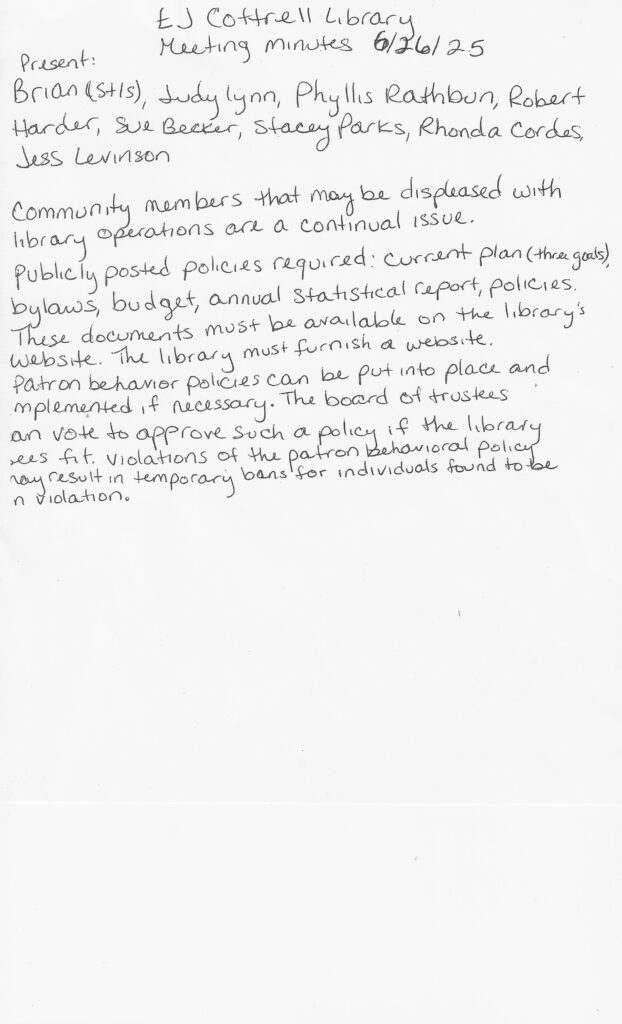 EJ Cottrell Library
Meeting minutes 6/26/25
Present:
Brian (StLs), Judy Lynn, Phyllis Rathbun, Robert
Harder, Sue Becker, Stacey Parks, Rhonda Cordes,
Jess Levinson
Community members that may be displeased with
library operations are a continual issue.
Publicly posted policies required: current plan (three goals),
bylaws, budget, annual statistical report, policies.
These documents must be available on the library's
website. The library must furnish a website.
Patron behavior policies can be put into place and
mplemented if necessary. The board of trustees
an vote to approve such a policy if the library
ees fit. Violations of the patron behavioral policy
may result in temporary bans for individuals found to be
n violation.